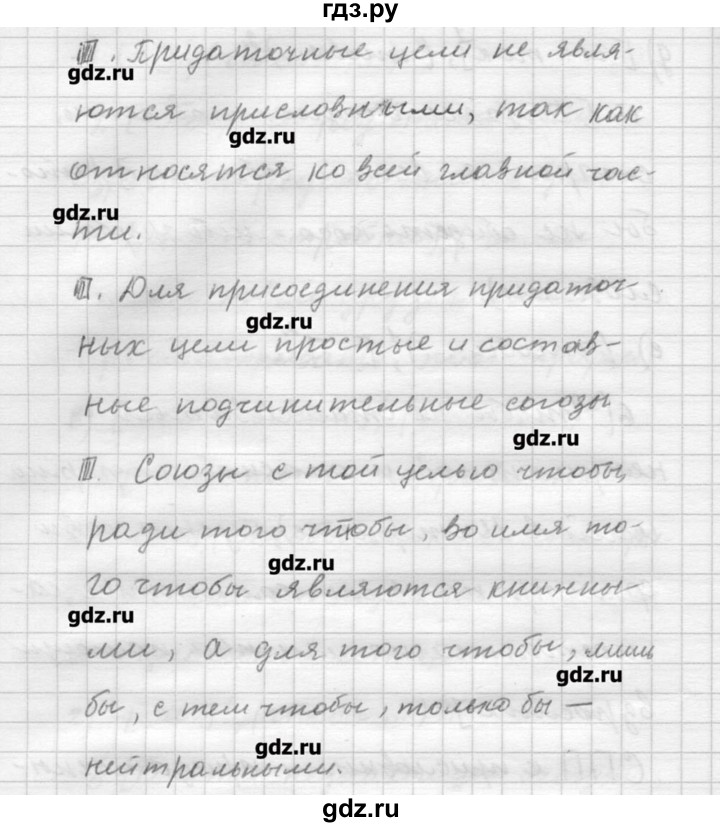 гдз.ру
III. Придаточные цели не явля-
gdz.ru
ются присловными, так как
gdz.ru
относятся ко всей главной час-
gdz.ru
ти.
II. Для присоединения придаточ-
gdz.ru
ных цели простые и состав-
ные подчинительные союзы
gdz.ru
III. Союзы с той целью чтобы,
ради того чтобы, во имя то-
gdz.ru
го чтобы являются книжны-
gdz.ru
ми, а для того чтобы, лишь
gdz.ru
бы, с тем чтобы, только бы —
gdz.ru
нейтральными.
gdz.ru